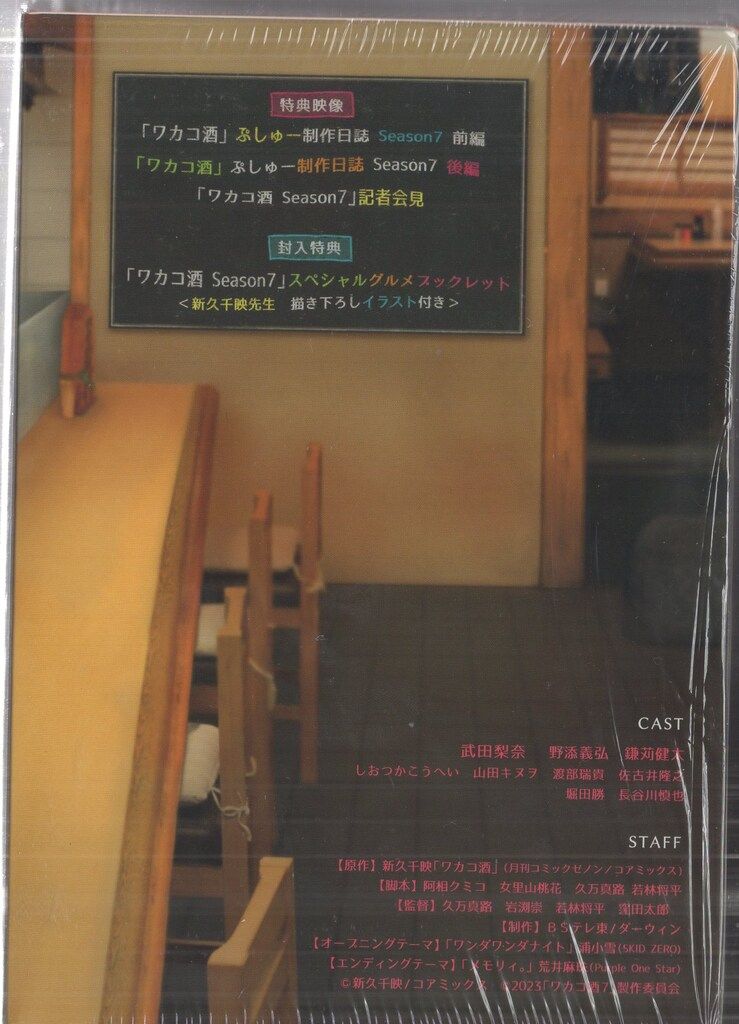 特典映像
「ワカコ酒」ぷしゅー制作日誌 Season7 前編
「ワカコ酒」ぷしゅー制作日誌 Season7 後編
「ワカコ酒 Season7」記者会見
封入特典
「ワカコ酒 Season7」スペシャルグルメブックレット
＜新久千映先生 描き下ろしイラスト付き＞
CAST
武田梨奈 野添義弘 鎌苅健太
しおつかこうへい 山田キヌヲ 渡部瑞貴 佐古井隆之
堀田勝 長谷川慎也
STAFF
【原作】新久千映「ワカコ酒」(月刊コミックゼノン/コアミックス)
【脚本】阿相クミコ 女里山桃花 久万真路 若林将平
【監督】久万真路 岩渕崇 若林将平 窪田太郎
【制作】BSテレ東/ダーウィン
【オープニングテーマ】「ワンダワンダナイト」浦小雪(SKID ZERO)
【エンディングテーマ】「メモリィ。」荒井麻珠(Purple One Star)
©新久千映/コアミックス ©2023「ワカコ酒7」製作委員会